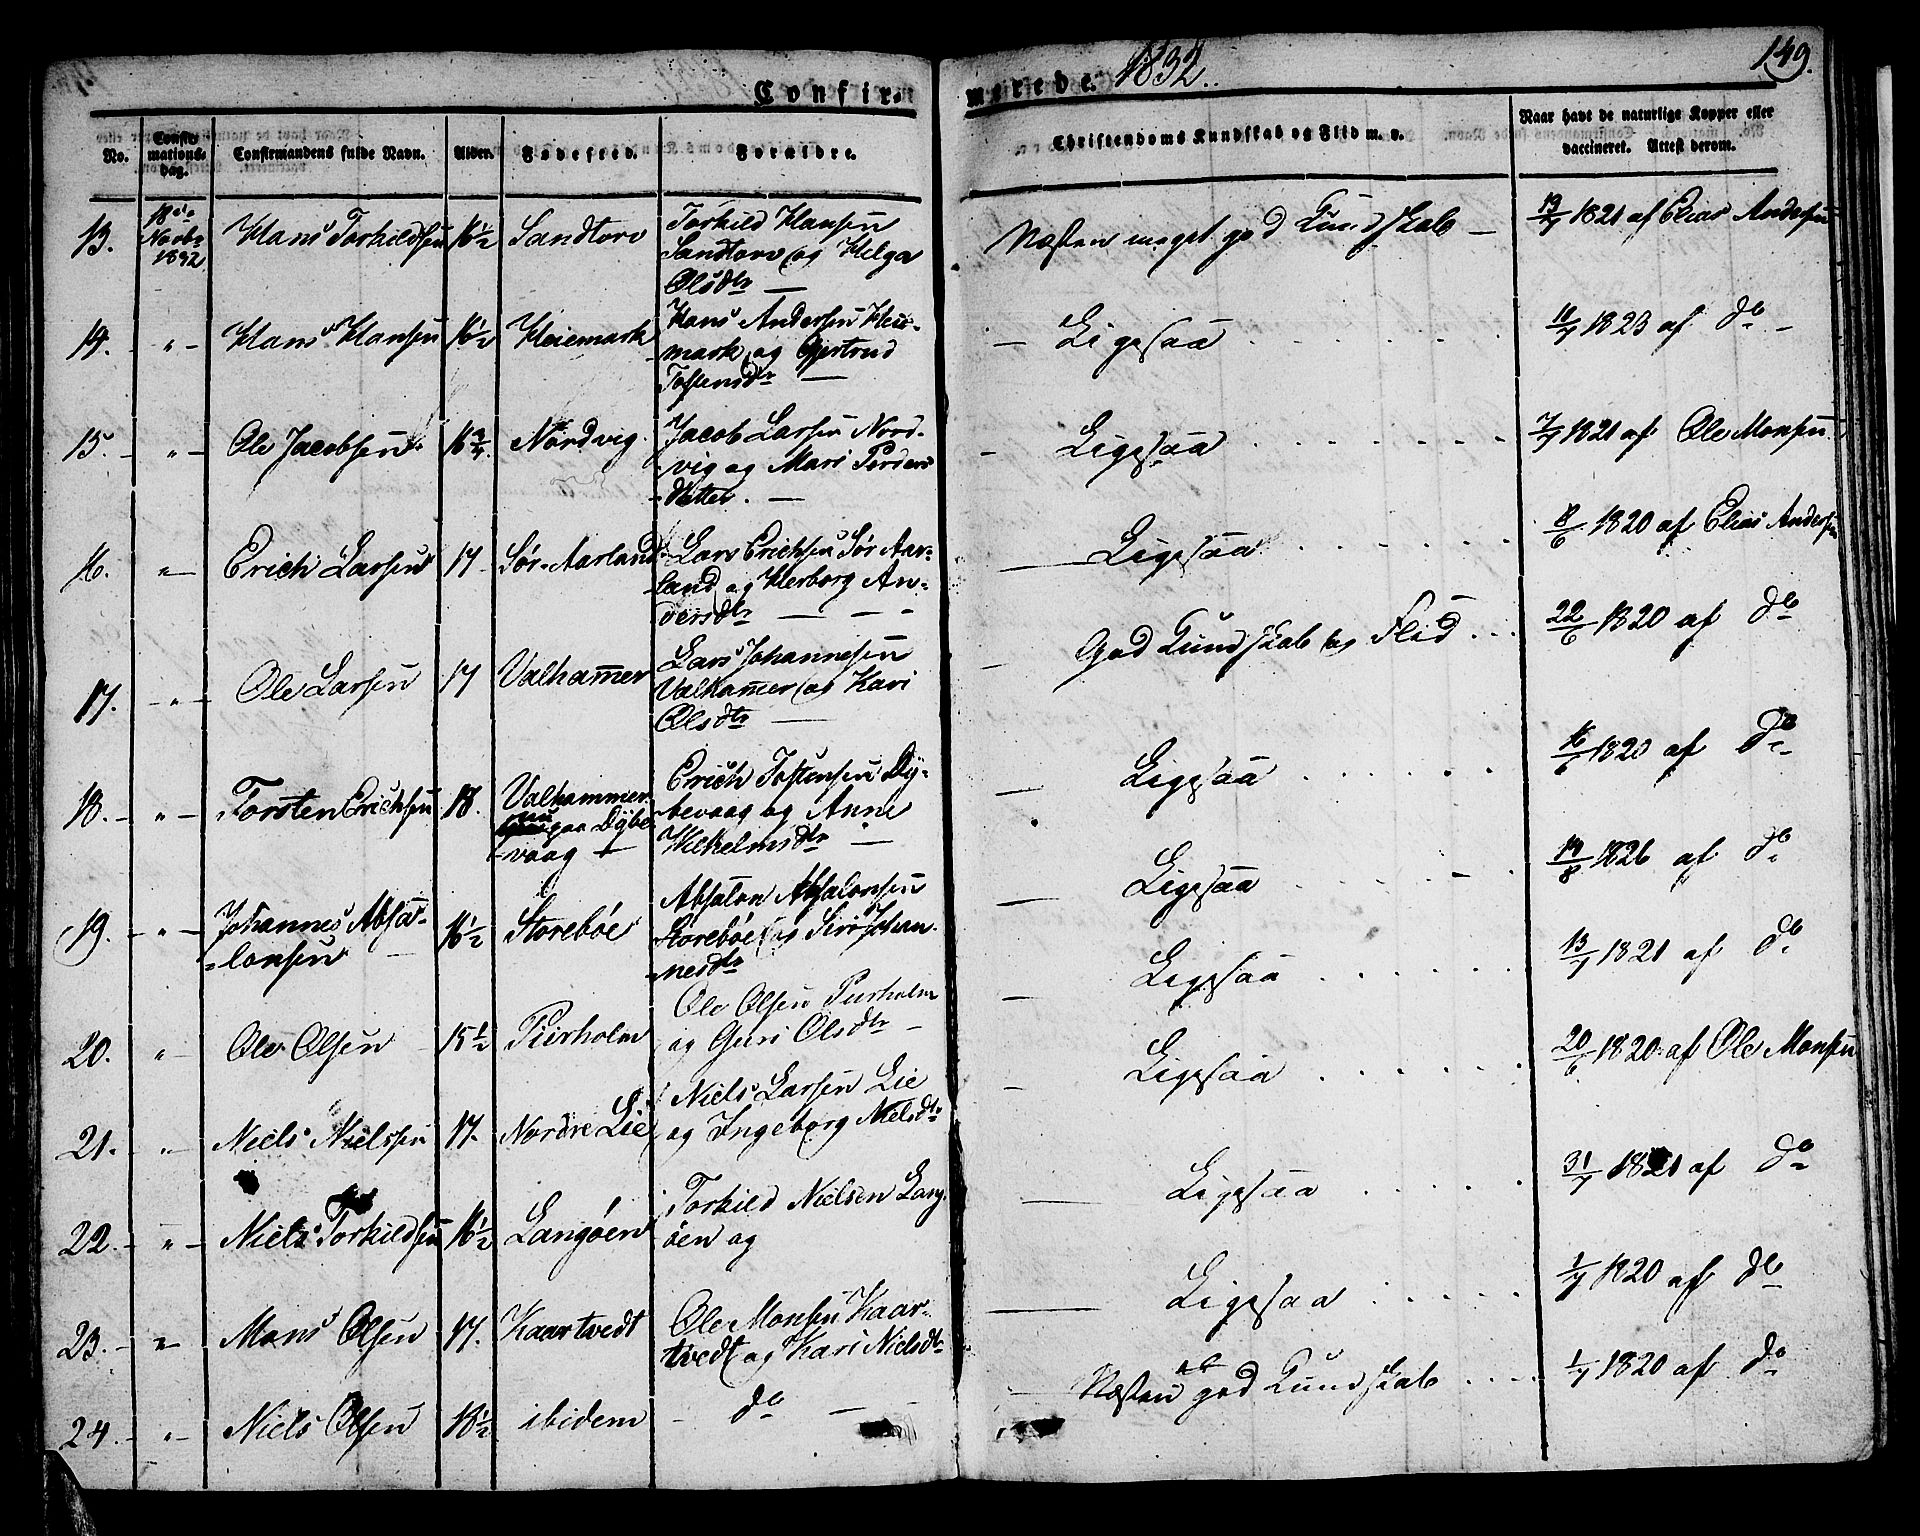 Confirmerede 1832.
149.
No.
Confirmationsdag.
Confirmandens fulde Navn.
Alder.
Fødested.
Forældre.
Christendoms Kundskab og Flid m. v.
Naar havt de naturlige Kopper eller
vaccineret. Attest derom.
13.
18de
Novbr
1832
Hans Torkildsen
16 1/2
Sandtorv
Torkild Hansen
Sandtorv og Helga
Olsdtr —
Næsten meget god Kundskab —
1821 af Elias Andersen
14. - " - Hans Hansen 16 1/2 Heiemark
Hans Andersen Hei-
mark og Gjertrud
Tostensdtr —
— Ligesaa . . . . . .
1823 af do —
15. - " - Ole Jacobsen 16 3/4 Nordvig.
Jacob Larsen Nord-
vig og Mari Peders
datter. —
- Ligesaa . . . . . .
7/7 1821 af Ole Monsen
16. " Erich Larsen 17 Sør-Aarland
Lars Erichsen Sør Aar-
land og Herborg An-
dersdtr — — -
— Ligesaa . . . . . .
8/6 1820 af Elias Andersen
17. - " - Ole Larsen 17 Valham̅er
Lars Johannesen
Valham̅er og Kari
Olsdtr —
— God Kundskab og Flid . . .
22/6 1820 af do
18. - " - Torsten Erichsen 18. Valhammer
nu paa Dybe-
vaag
Erich Tostensen Dy-
bevaag og Anne
Wilhelmsdtr —
— Ligesaa . . . . . .
16/6 1820 af do
19. - " - Johannes Absa-
lonsen
16 1/2 Storebøe
Absalon Absalonsen
Storebøe og Siri Johan-
nesdtr
— Ligesaa . . . . . .
19/8 1826 af do
20. " Ole Olsen 15 1/2 Pierholm
Ole Olsen Pierholm
og Guri Olsdtr —
— Ligesaa . . . . . .
13/7 1821 af do
21. - " Niels Nielsen 17. Nordre Lie
Niels Larsen Lie
og Ingeborg Nielsdtr
— Ligesaa . . . . . .
20/6 1820 af Ole Monsen
22. - " - Niels Torkildsen 16 1/2 Langøen
Torkild Nielsen Lang-
øen og
— Ligesaa . . . . . .
31/7 1821 af do
23. - " - Mons Olsen 17. Kaartvedt
Ole Monsen Kaar-
tvedt og Kari Nielsdtr
— Ligesaa . . . . . .
1/7 1820 af do
24. - " - Niels Olsen 18 1/2 ibidem
- do — -
— Næsten god Kundskab . . . .
1/7 1820 af do